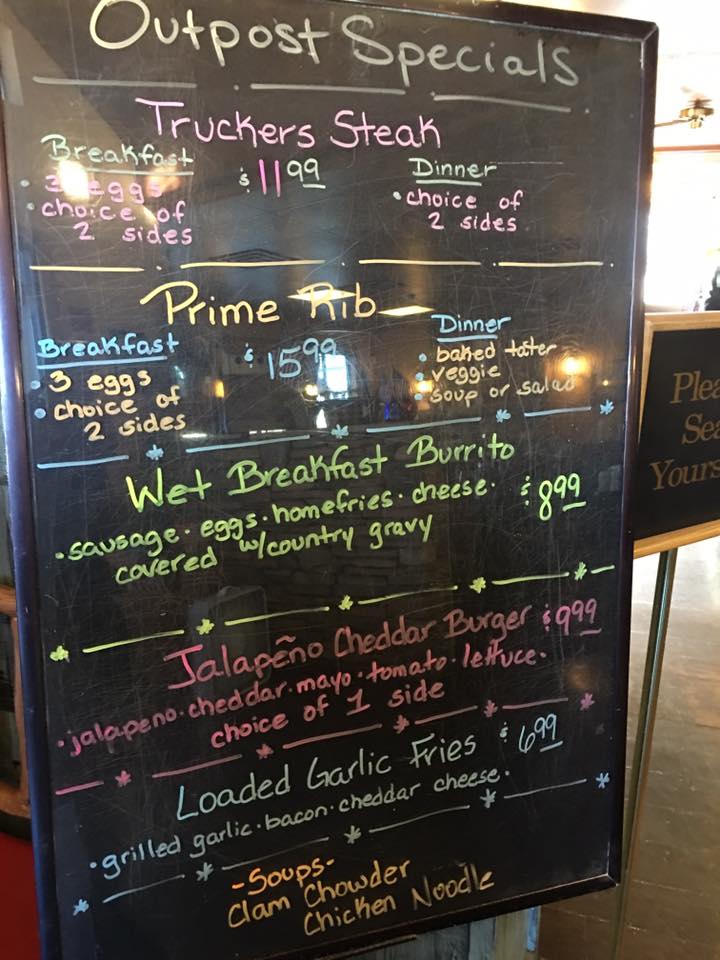 Outpost Specials
Truckers Steak
Breakfast
• 3 eggs
• choice of
2 sides
$11.99
Dinner
• choice of
2 sides
Prime Rib
Breakfast
• 3 eggs
• choice of
2 sides
$15.99
Dinner
• baked tater
• veggie
• soup or salad
Wet Breakfast Burrito
• sausage • eggs • homefries • cheese •
covered w/country gravy
$8.99
Jalapeño Cheddar Burger $9.99
• jalapeno • cheddar • mayo • tomato • lettuce •
choice of 1 side
Loaded Garlic Fries $6.99
• grilled garlic • bacon • cheddar cheese •
-Soups-
Clam Chowder
Chicken Noodle